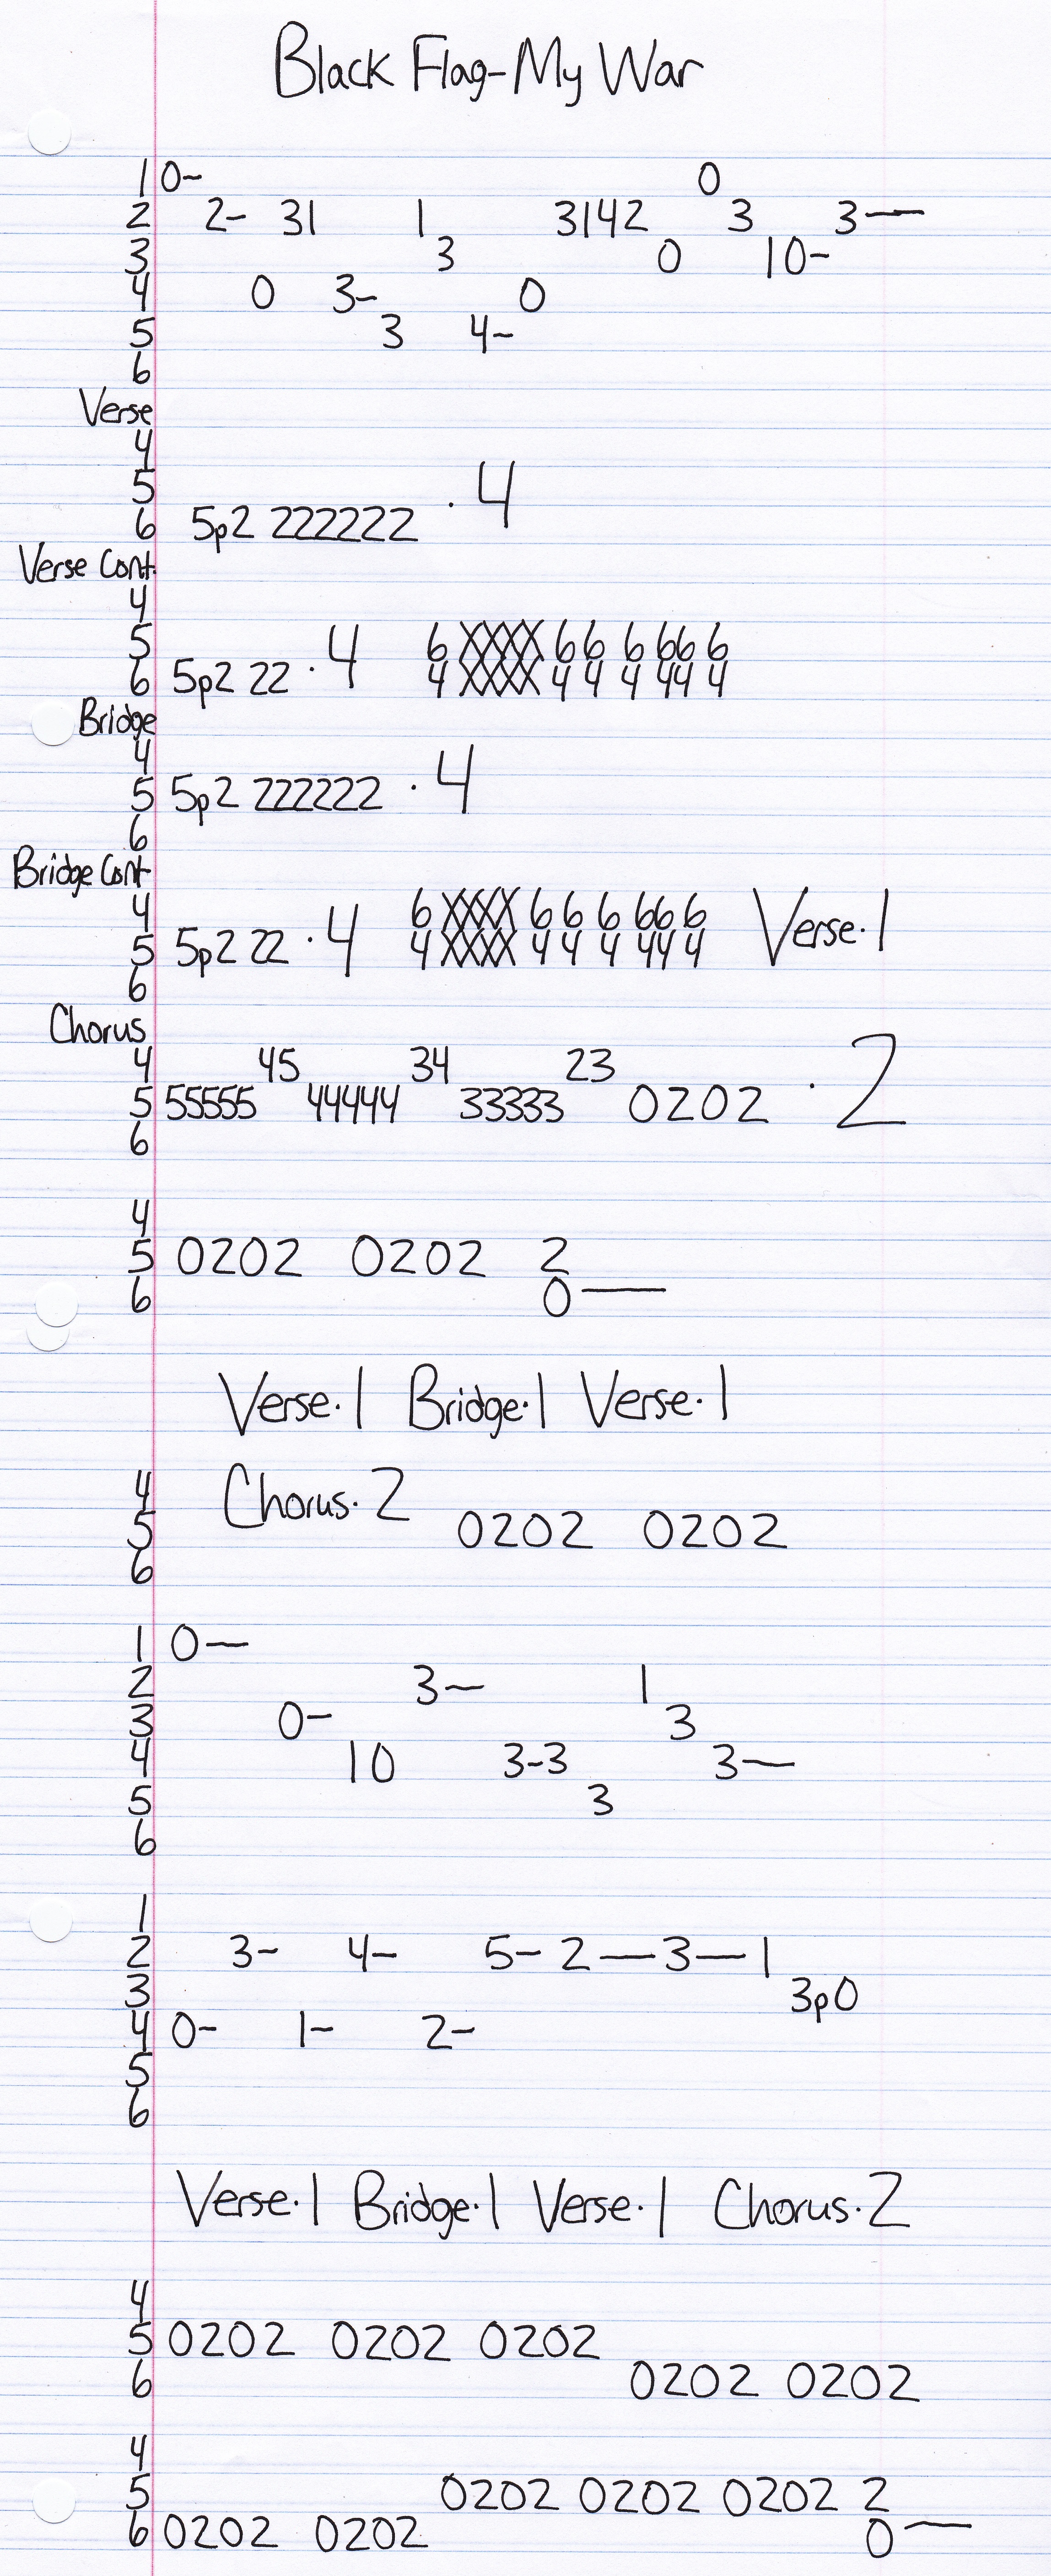 Black Flag-My War
1 0- 0
2 2- 31 1 3142 3 3—
3 3 0 10-
4 0 3- 0
5 3 4-
6
Verse
4
5
6 5p2 222222 · 4
Verse Cont.
4
5 6 XXXX 6 6 6 6 6 6
6 5p2 22 · 4 4 XXXX 4 4 4 4 4 4
Bridge
4
5 5p2 222222 · 4
6
Bridge Cont
4 6 XXXX 6 6 6 6 6 6
5 5p2 22 · 4 4 XXXX 4 4 4 4 4 4 Verse·1
6
Chorus
4 45 34 23
5 55555 44444 33333 0202 · 2
6
4
5 0202 0202 2
6 0—
Verse·1 Bridge·1 Verse·1
4 Chorus·2
5 0202 0202
6
1 0—
2 3— 1
3 0- 3
4 10 3-3 3—
5 3
6
1
2 3- 4- 5- 2—3—1
3 3p0
4 0- 1- 2-
5
6
Verse·1 Bridge·1 Verse·1 Chorus·2
4
5 0202 0202 0202
6 0202 0202
4
5 0202 0202 0202 2
6 0202 0202 0—